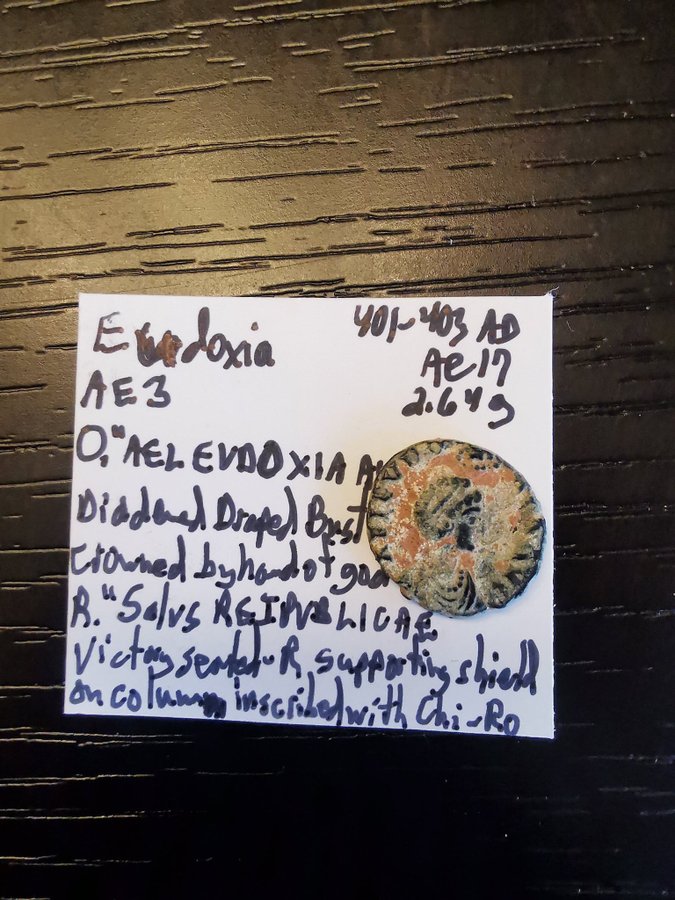 Eudoxia
401-403 AD
AE3
AE17
2.64g
O."AEL EVDOXIA A
Diademed Draped Bust
Crowned by hand of god
R."Salvs REIPVBLICAE
Victory seated R supporting shield
on column inscribed with Chi-Ro